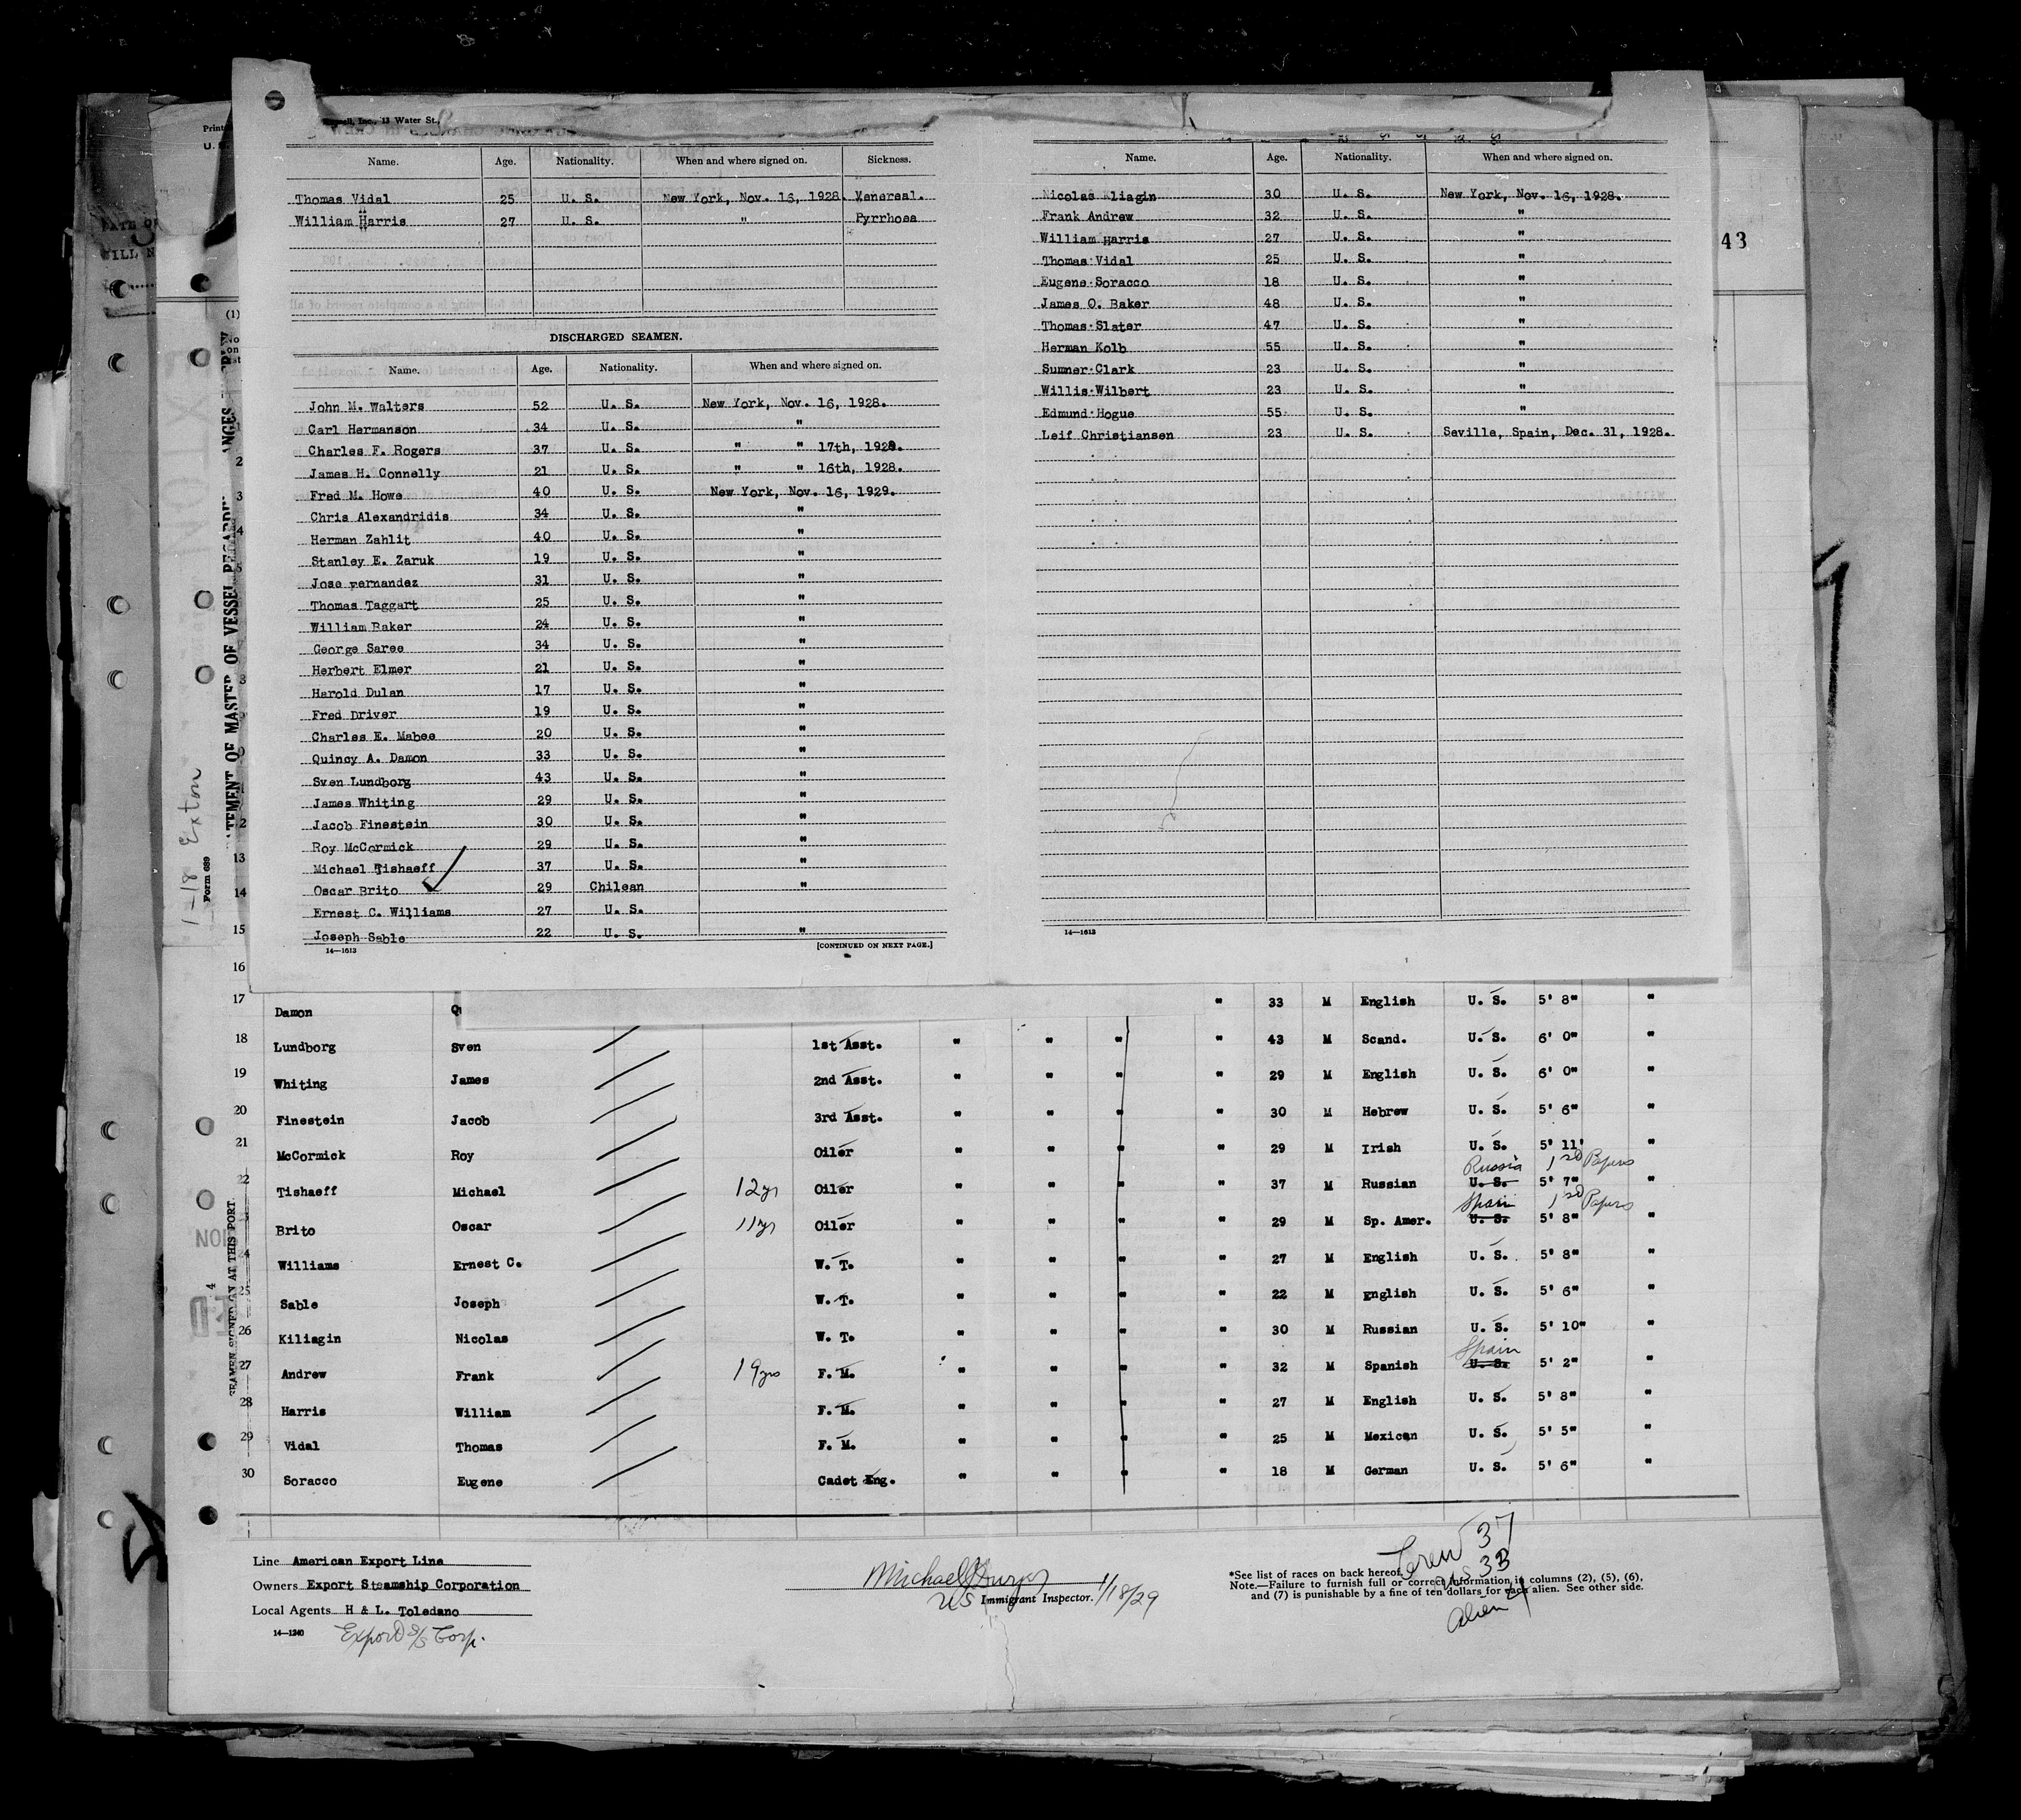 Inc., 13 Water St.,
Name. Age. Nationality. When and where signed on. Sickness.
Thomas Vidal 25 U. S. New York, Nov. 16, 1928. Venereal.
William Harris 27 U. S. " Pyrrhosa
DISCHARGED SEAMEN.
Name. Age. Nationality. When and where signed on.
John M. Walters 52 U. S. New York, Nov. 16, 1928.
Carl Hermanson 34 U. S. "
Charles F. Rogers 37 U. S. " " 17th, 1928.
James H. Connelly 21 U. S. " " 16th, 1928.
Fred M. Howe 40 U. S. New York, Nov. 16, 1929.
Chris Alexandridis 34 U. S. "
Herman Zahlit 40 U. S. "
Stanley E. Zaruk 19 U. S. "
Jose Fernandez 31 U. S. "
Thomas Taggart 25 U. S. "
William Baker 24 U. S. "
George Saree 34 U. S. "
Herbert Elmer 21 U. S. "
Harold Dulan 17 U. S. "
Fred Driver 19 U. S. "
Charles E. Mabee 20 U. S. "
Quincy A. Damon 33 U. S. "
Sven Lundborg 43 U. S. "
James Whiting 29 U. S. "
Jacob Finestein 30 U. S. "
Roy McCormick 29 U. S. "
Michael Tishaeff 37 U. S. "
Oscar Brito 29 Chilean "
Ernest C. Williams 27 U. S.
Joseph Sable 22 U. S. "
14—1613 [CONTINUED ON NEXT PAGE.]
Name. Age. Nationality. When and where signed on.
Nicolas Kliagin 30 U. S. New York, Nov. 16, 1928.
Frank Andrew 32 U. S. "
William Harris 27 U. S. "
Thomas Vidal 25 U. S. "
Eugene Soracco 18 U. S. "
James O. Baker 48 U. S. "
Thomas Slater 47 U. S. "
Herman Kolb 55 U. S. "
Sumner Clark 23 U. S. "
Willis Wilbert 23 U. S. "
Edmund Hogue 55 U. S. "
Leif Christiansen 23 U. S. Seville, Spain, Dec. 31, 1928.
14—1613
43
1-18 Exton
Form 689
STATEMENT OF MASTER OF VESSEL REGARDING CHANGES
SEAMEN SIGNED ON AT THIS PORT
(1)
2
3
4
5
12
13
14
15
16
17 Damon " 33 M English U. S. 5' 8" "
18 Lundborg Sven 1st Asst. " " " " 43 M Scand. U. S. 6' 0" "
19 Whiting James 2nd Asst. " " " " 29 M English U. S. 6' 0" "
20 Finestein Jacob 3rd Asst. " " " " 30 M Hebrew U. S. 5' 6" "
21 McCormick Roy Oiler " " " " 29 M Irish U. S. 5' 11' "
Russia 1st Papers
22 Tishaeff Michael 12 yr Oiler " " " " 37 M Russian U. S. 5' 7" "
Spain 1st Papers
Brito Oscar 11 yr Oiler " " " " 29 M Sp. Amer. U. S. 5' 8" "
24 Williams Ernest C. W. T. " " " " 27 M English U. S. 5' 8" "
25 Sable Joseph W. T. " " " " 22 M English U. S. 5' 6" "
26 Kiliagin Nicolas W. T. " " " " 30 M Russian U. S. 5' 10" "
Spain
27 Andrew Frank 19 yrs F. M. " " " " 32 M Spanish U. S. 5' 2" "
28 Harris William F. M. " " " " 27 M English U. S. 5' 8" "
29 Vidal Thomas F. M. " " " " 25 M Mexican U. S. 5' 5" "
30 Soracco Eugene Cadet Eng. " " " " 18 M German U. S. 5' 6" "
Line American Export Line
Owners Export Steamship Corporation
Local Agents H & L. Toledano
14—1240 Export S/S Corp.
Michael
US Immigrant Inspector. 1/18/29
Crew 37
US 33
Alien 4
*See list of races on back hereof.
Note.—Failure to furnish full or correct information in columns (2), (5), (6),
and (7) is punishable by a fine of ten dollars for each alien. See other side.